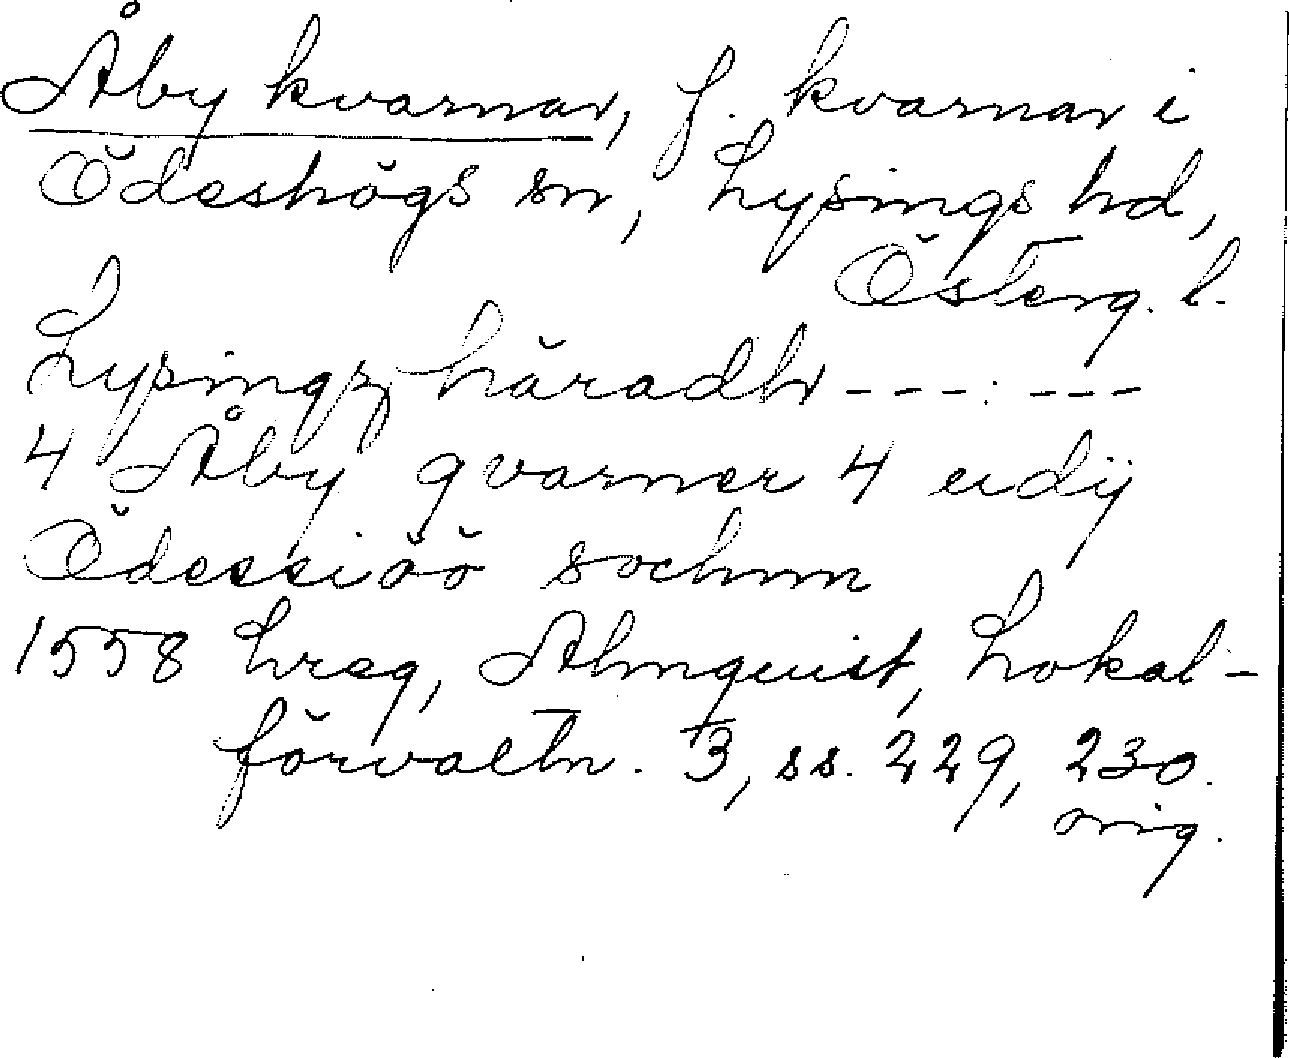 Åby kvarnar, f. kvarnar i
Ödeshögs sn, Lysings hd,
Österg. l.
Lysingz häradh ---:---
4 Åby qvarner 4 udij
Ödessiöö sochnn
1558 hreg, Almquist, Lokal-
förvaltn. 3, ss. 229, 230.
orig.